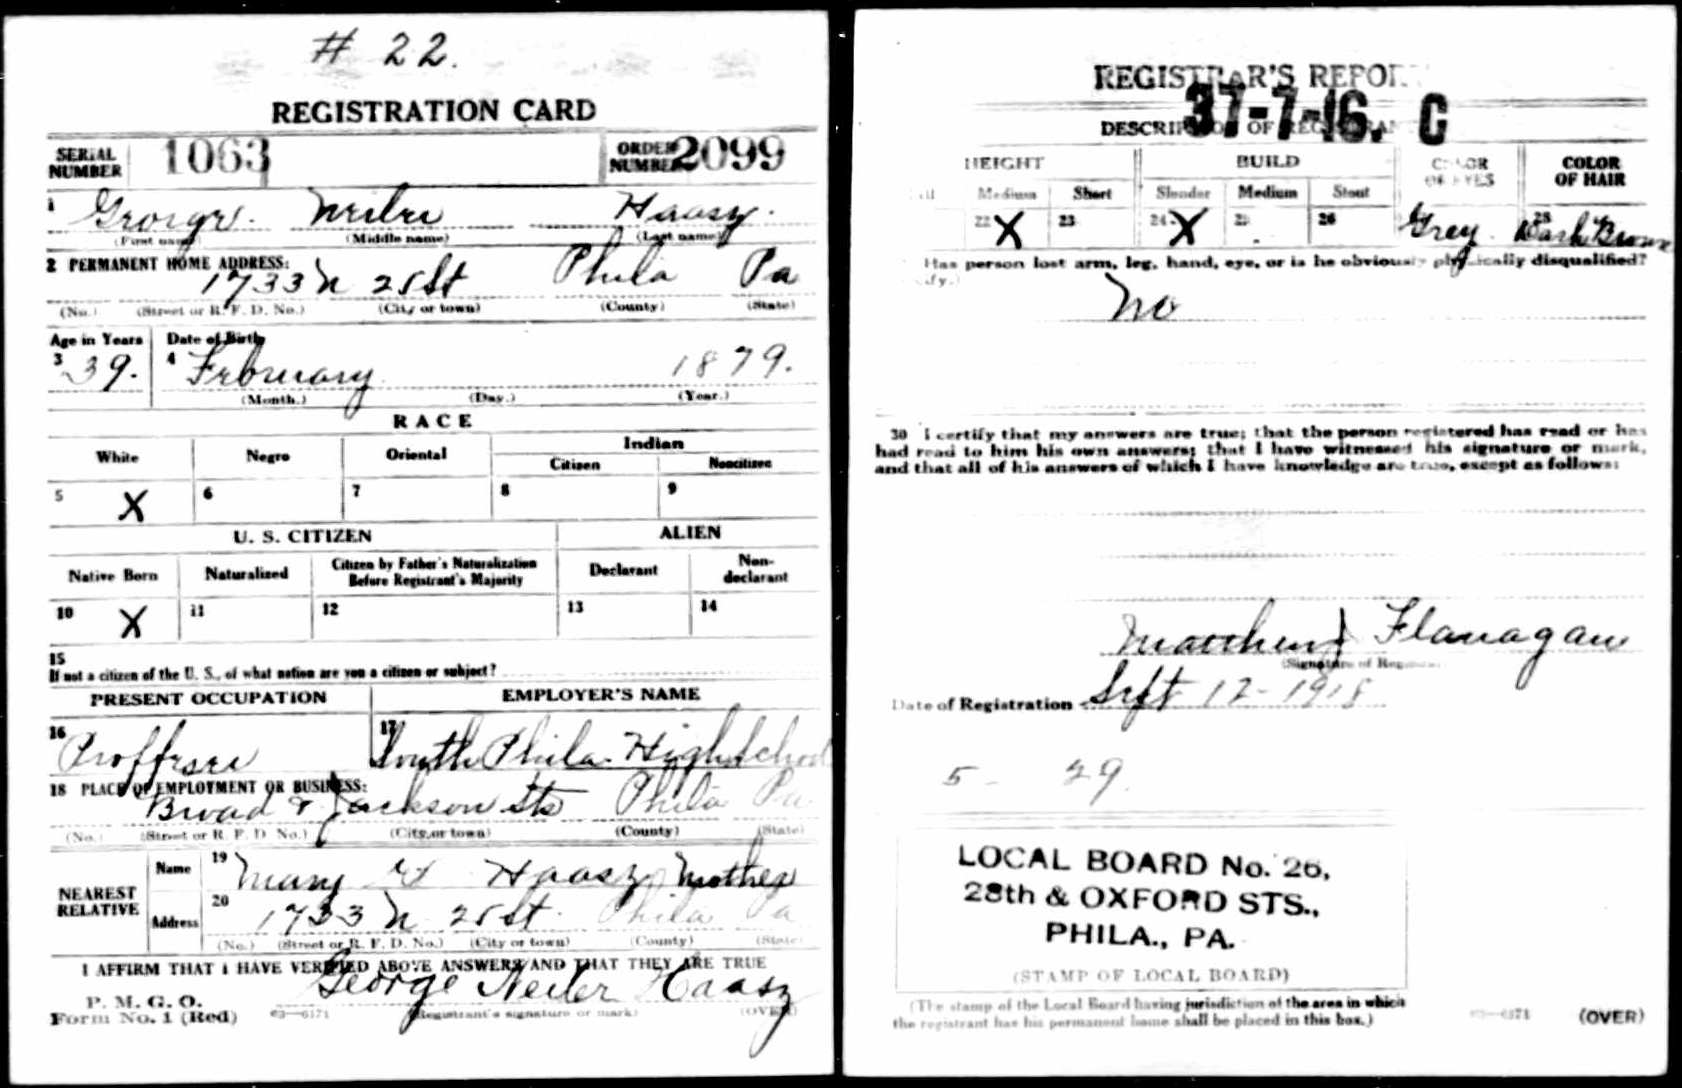 # 22.
REGISTRATION CARD
SERIAL NUMBER 1063 ORDER NUMBER 2099
1 George Neiler Haasz.
(First name) (Middle name) (Last name)
2 PERMANENT HOME ADDRESS:
1733 N 25 St Phila Pa
(No.) (Street or R. F. D. No.) (City or town) (County) (State)
Age in Years Date of Birth
3 39. 4 February 1879.
(Month.) (Day.) (Year.)
RACE
White Negro Oriental Indian
Citizen Noncitizen
5 X 6 7 8 9
U. S. CITIZEN ALIEN
Native Born Naturalized Citizen by Father's Naturalization Before Registrant's Majority Declarant Non-declarant
10 X 11 12 13 14
15
If not a citizen of the U. S., of what nation are you a citizen or subject?
PRESENT OCCUPATION EMPLOYER'S NAME
16 Proffeser 17 South Phila. High School
18 PLACE OF EMPLOYMENT OR BUSINESS:
Broad & Jackson Sts Phila Pa
(No.) (Street or R. F. D. No.) (City or town) (County) (State)
NEAREST RELATIVE
Name 19 Mary Haasz Mother
Address 20 1733 N. 25 St. Phila Pa
(No.) (Street or R. F. D. No.) (City or town) (County) (State)
I AFFIRM THAT I HAVE VERIFIED ABOVE ANSWERS AND THAT THEY ARE TRUE
P. M. G. O.
Form No. 1 (Red) 03—6171 George Neiler Haasz
(Registrant's signature or mark) (OVER)
REGISTRAR'S REPORT
37-7-16. C
DESCRIPTION OF REGISTRANT
HEIGHT BUILD COLOR OF EYES COLOR OF HAIR
Medium Short Slender Medium Stout
22 X 23 24 X 25 26 Grey 28 Dark Brown
Has person lost arm, leg, hand, eye, or is he obviously physically disqualified?
No
30 I certify that my answers are true; that the person registered has read or has
had read to him his own answers; that I have witnessed his signature or mark,
and that all of his answers of which I have knowledge are true, except as follows:
Matthew J Flanagan
(Signature of Registrar)
Date of Registration Sept 12-1918
5 - 29.
LOCAL BOARD No. 26,
28th & OXFORD STS.,
PHILA., PA.
(STAMP OF LOCAL BOARD)
(The stamp of the Local Board having jurisdiction of the area in which
the registrant has his permanent home shall be placed in this box.)
03—6171 (OVER)